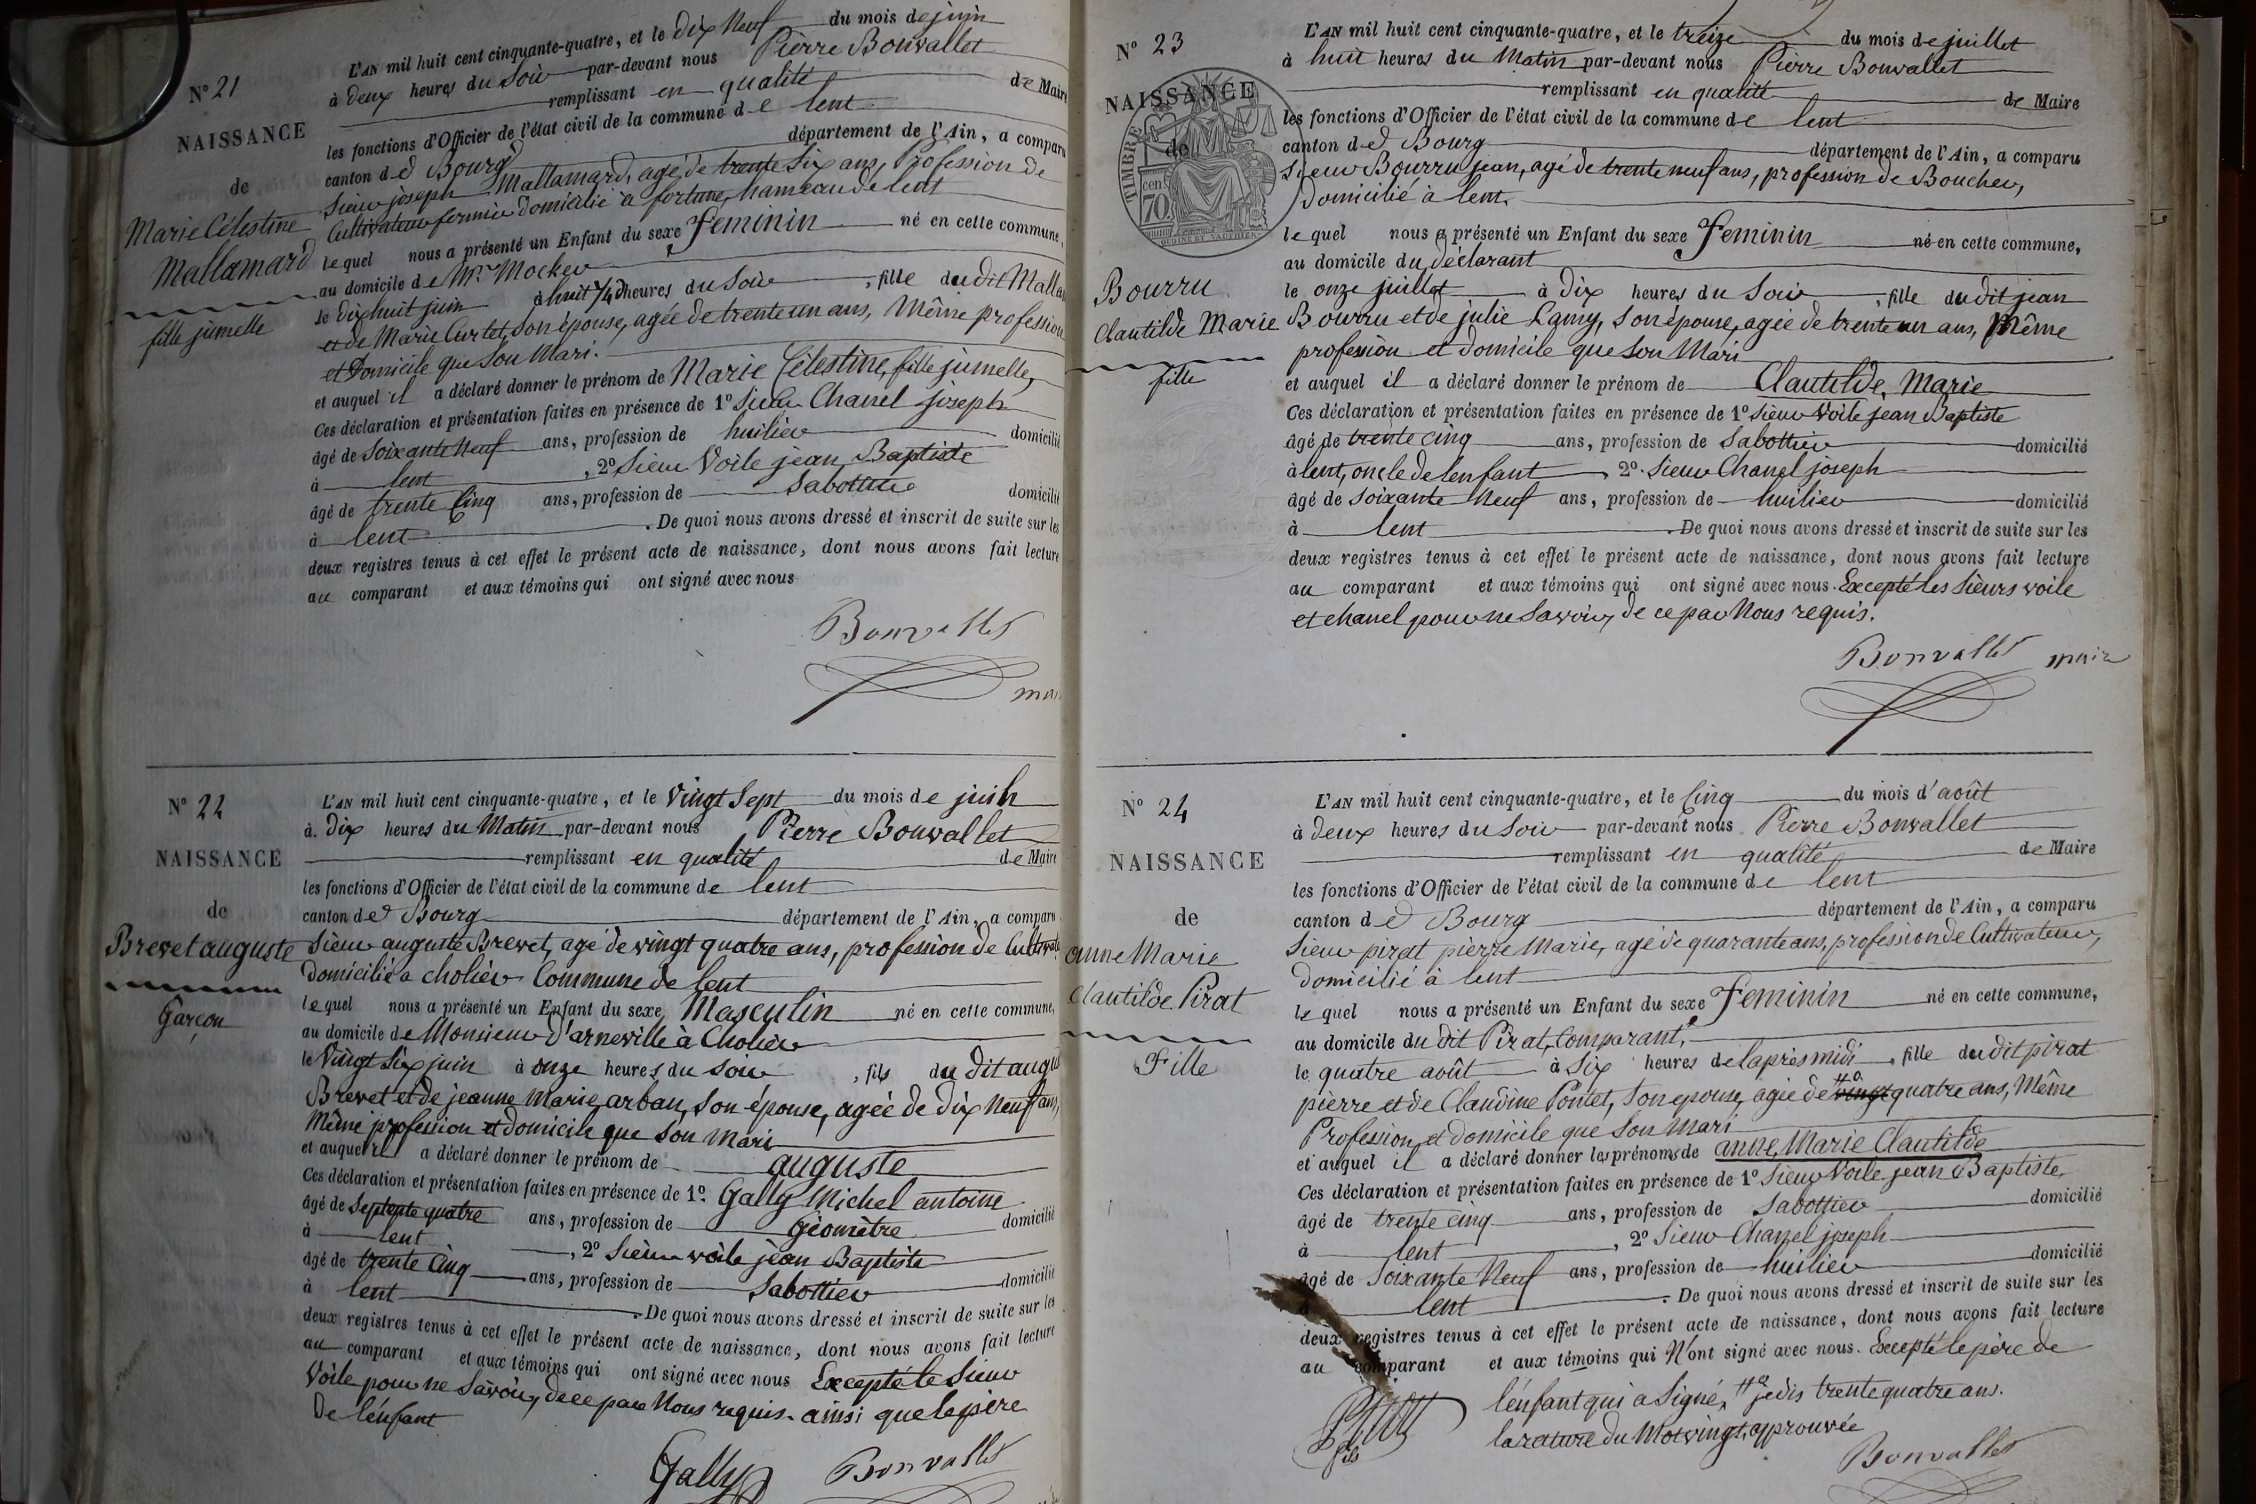 N° 21
NAISSANCE
de
Marie Célestine
Mallamard
fille jumelle
L'AN mil huit cent cinquante-quatre, et le dix Neuf du mois de juin
à deux heures du Soir par-devant nous Pierre Bonvallet
remplissant en qualité de Maire
les fonctions d'Officier de l'état civil de la commune de lent
canton de Bourg département de l'Ain, a comparu
Sieur joseph Mallamard, agé de trente Six ans, Profession de
Cultivateur fermier domicilié à fortune, hameau de lent
le quel nous a présenté un Enfant du sexe Féminin né en cette commune,
au domicile de Mr. Mocker
le dix huit juin à huit 1/4 heures du Soir, fille du dit Malla
et de Marie Curtet, son épouse, agée de trente un ans, Même profession
et Domicile que Son Mari.
et auquel il a déclaré donner le prénom de Marie Célestine, fille jumelle,
Ces déclaration et présentation faites en présence de 1° Sieur Chanel joseph
âgé de Soixante Neuf ans, profession de huilier domicilié
à lent, 2° Sieur Voile jean Baptiste
âgé de trente Cinq ans, profession de Sabottier domicilié
à lent. De quoi nous avons dressé et inscrit de suite sur les
deux registres tenus à cet effet le présent acte de naissance, dont nous avons fait lecture
au comparant et aux témoins qui ont signé avec nous
Bonvallet
N° 22
NAISSANCE
de
Brevet auguste
Garçon
L'AN mil huit cent cinquante-quatre, et le Vingt Sept du mois de juin
à Dix heures du Matin par-devant nous Pierre Bonvallet
remplissant en qualité de Maire
les fonctions d'Officier de l'état civil de la commune de lent
canton de Bourg département de l'Ain, a comparu
Sieur auguste Brevet, agé de vingt quatre ans, profession de Cultivate
domicilié a cholier Commune de lent
le quel nous a présenté un Enfant du sexe Masculin né en cette commune,
au domicile de Monsieur d'arneville à Cholier
le Vingt Six juin à onze heures du soir, fils du dit augus
Brevet et de jeanne Marie arban, son épouse, agée de Dix Neuf ans,
Même profession et domicile que Son Mari
et auquel il a déclaré donner le prénom de auguste
Ces déclaration et présentation faites en présence de 1°. Gally Michel antoine
âgé de Septente quatre ans, profession de Géomètre domicilié
à lent, 2° Sieur voile jean Baptiste
âgé de trente Cinq ans, profession de Sabottier domicilié
à lent. De quoi nous avons dressé et inscrit de suite sur les
deux registres tenus à cet effet le présent acte de naissance, dont nous avons fait lecture
au comparant et aux témoins qui ont signé avec nous Excepté le Sieur
Voile pour ne Savoir, de ce par Nous requis. ainsi que le père
De l'enfant
Gally Bonvallet
N° 23
NAISSANCE
de
TIMBRE
70
cen
Bourru
Clautilde Marie
fille
L'AN mil huit cent cinquante-quatre, et le treize du mois de juillet
à huit heures du Matin par-devant nous Pierre Bonvallet
remplissant en qualité de Maire
les fonctions d'Officier de l'état civil de la commune de lent
canton de Bourg département de l'Ain, a comparu
Sieur Bourru jean, agé de trente neuf ans, profession de Boucher,
Domicilié à lent.
le quel nous a présenté un Enfant du sexe Feminin né en cette commune,
au domicile du déclarant
le onze juillet à Dix heures du Soir, fille du dit jean
Bourru et de julie Lamy, Son épouse, agée de trente un ans, Même
profession et domicile que Son Mari
et auquel il a déclaré donner le prénom de Clautilde, Marie
Ces déclaration et présentation faites en présence de 1° Sieur Voile jean Baptiste
âgé de trente cinq ans, profession de Sabottier domicilié
à lent, oncle de lenfant, 2°. Sieur Chanel joseph
âgé de Soixante Neuf ans, profession de huilier domicilié
à lent. De quoi nous avons dressé et inscrit de suite sur les
deux registres tenus à cet effet le présent acte de naissance, dont nous avons fait lecture
au comparant et aux témoins qui ont signé avec nous. Excepté les Sieurs voile
et chanel pour ne Savoir, de ce par Nous requis.
Bonvallet maire
N° 24
NAISSANCE
de
anne Marie
Clautilde Pirat
Fille
L'AN mil huit cent cinquante-quatre, et le Cinq du mois d'août
à deux heures du Soir par-devant nous Pierre Bonvallet
remplissant en qualité de Maire
les fonctions d'Officier de l'état civil de la commune de lent
canton de Bourg département de l'Ain, a comparu
Sieur pirat pierre Marie, agé de quarante ans, profession de Cultivateur,
domicilié à lent
le quel nous a présenté un Enfant du sexe Feminin né en cette commune,
au domicile du dit Pirat, Comparant,
le quatre août à Six heures de laprès midi, fille du dit pirat
pierre et de Claudine Pontet, Son epouse, agée de vingt quatre ans, Même
Profession et domicile que Son Mari
et auquel il a déclaré donner les prénoms de anne, Marie Clautilde
Ces déclaration et présentation faites en présence de 1° Sieur Voile jean Baptiste,
âgé de trente cinq ans, profession de Sabottier domicilié
à lent, 2° Sieur Chanel joseph
âgé de Soixante Neuf ans, profession de huilier domicilié
lent. De quoi nous avons dressé et inscrit de suite sur les
deux registres tenus à cet effet le présent acte de naissance, dont nous avons fait lecture
au comparant et aux témoins qui N'ont signé avec nous. Excepté le père de
l'enfant qui a Signé, je dis trente quatre ans.
la rature du Mot vingt, approuvée
Bonvallet